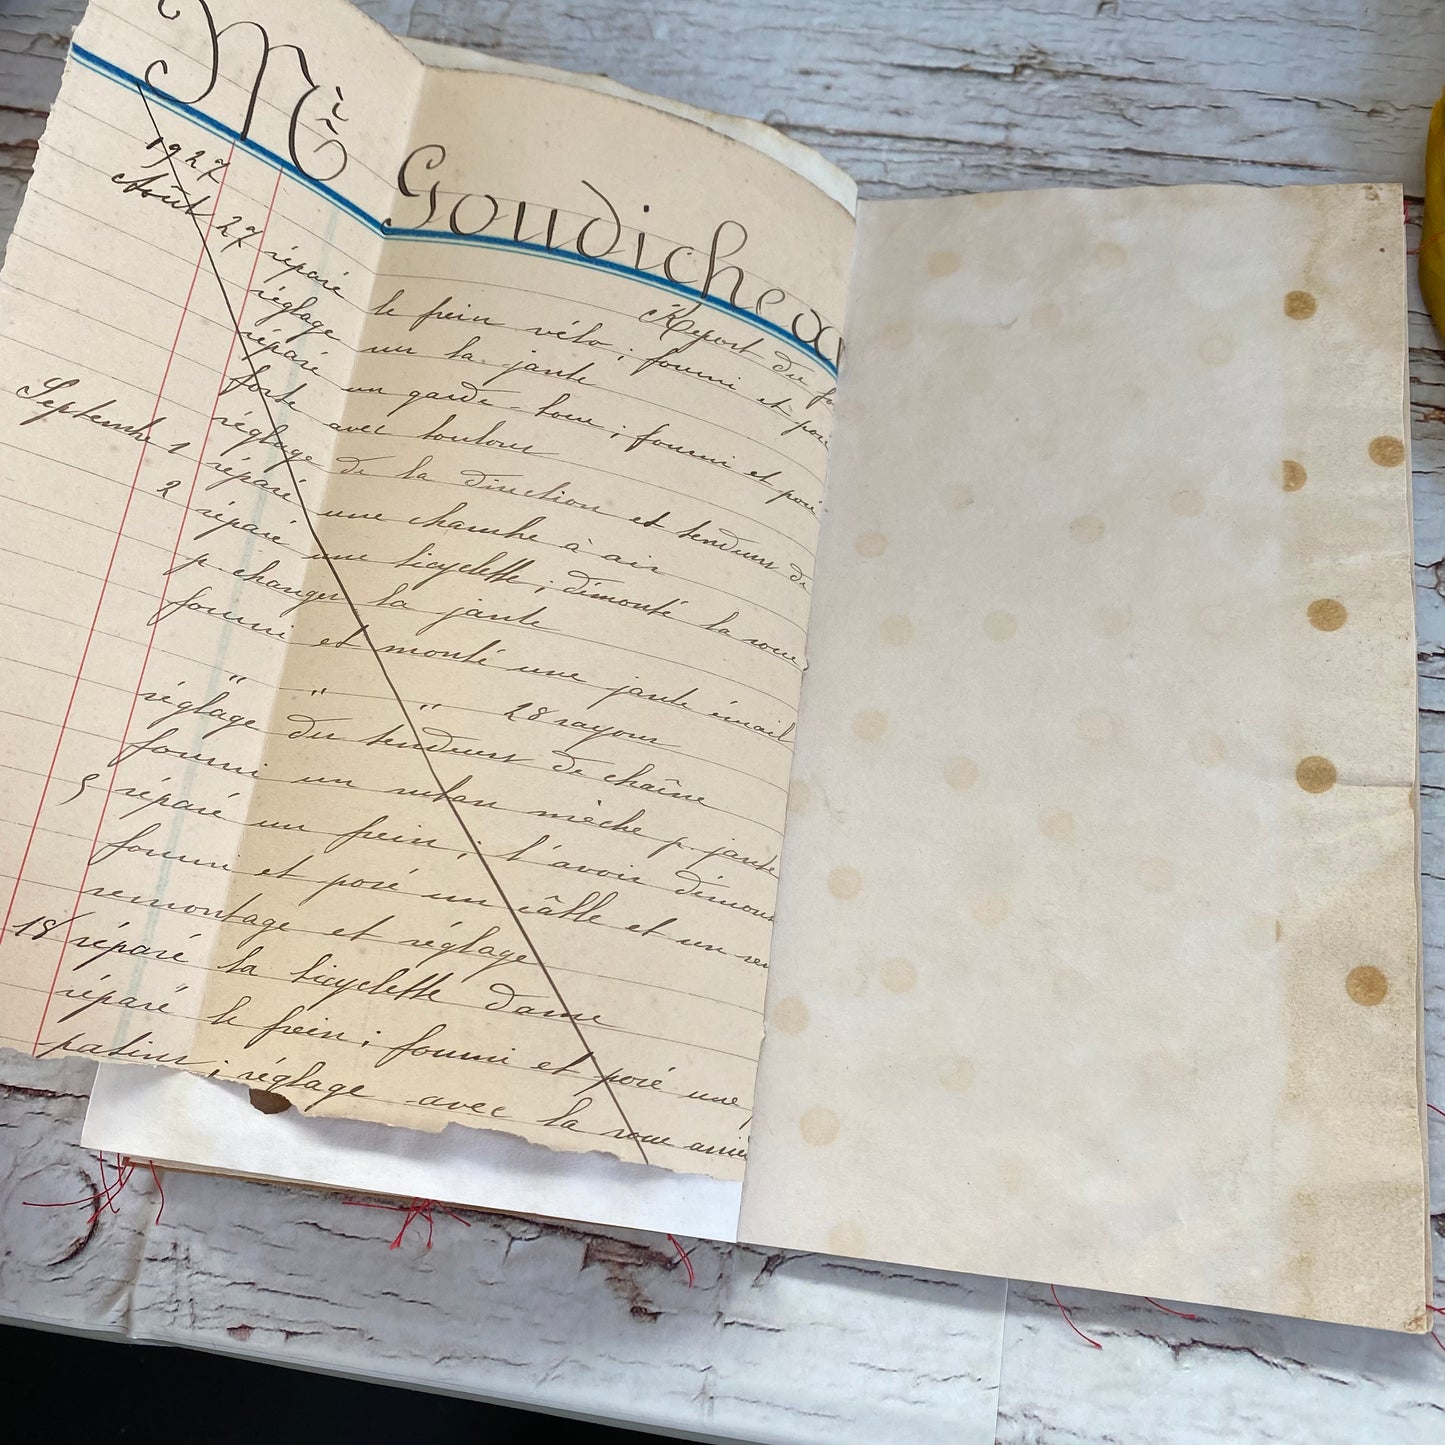 Mr Goudichea
Report du
1927
Août 27 réparé le frein vélo ; fourni et posé
réglage sur la jante
réparé un garde-boue ; fourni et posé
forte avec boulons
réglage de la direction et tendeurs de
Septembre 1 réparé une chambre à air
2 réparé une bicyclette ; démonté la roue
p. changer la jante
fourni et monté une jante émail
" " " 28 rayons
réglage du tendeurs de chaîne
fourni un ruban mèche p. jante
5 réparé un frein ; l'avoir démont
fourni et posé un câble et un
remontage et réglage
18 réparé la bicyclette dame
réparé le frein ; fourni et posé une
patins ; réglage avec la roue